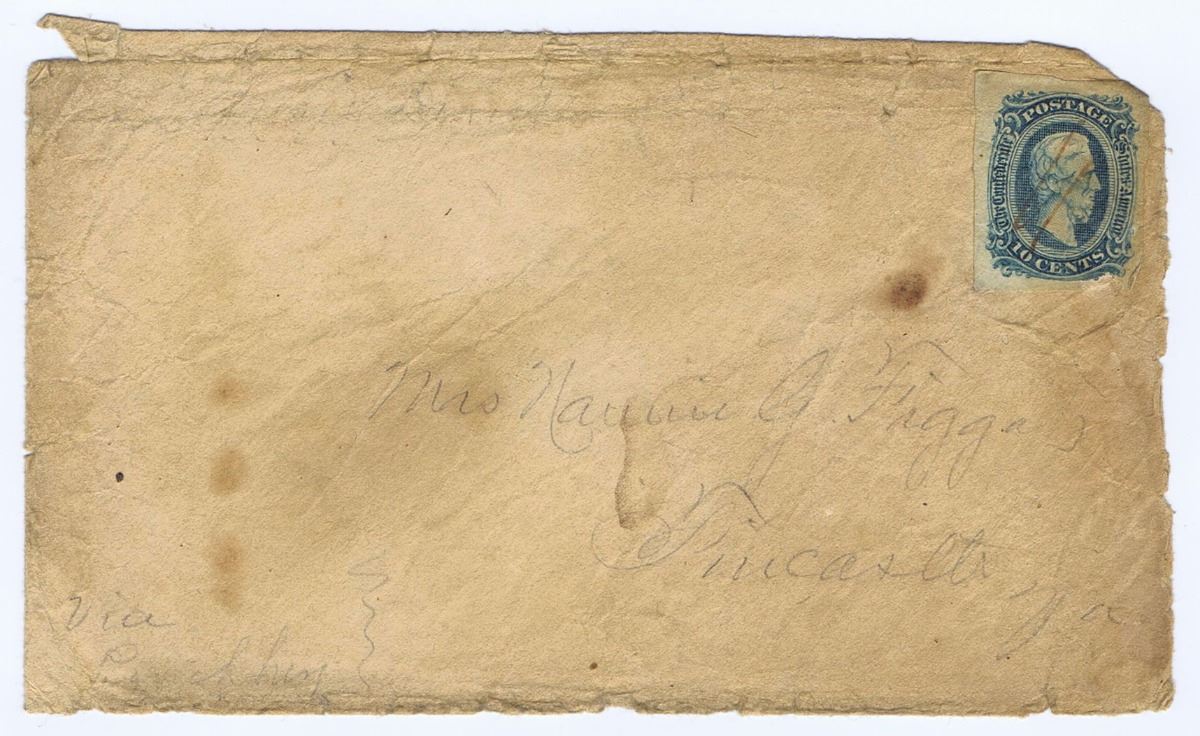 POSTAGE
The Confederate States of America
10 CENTS
Mrs Nannie G. Figgas
Fincastle
Va
Via
Lynchburg